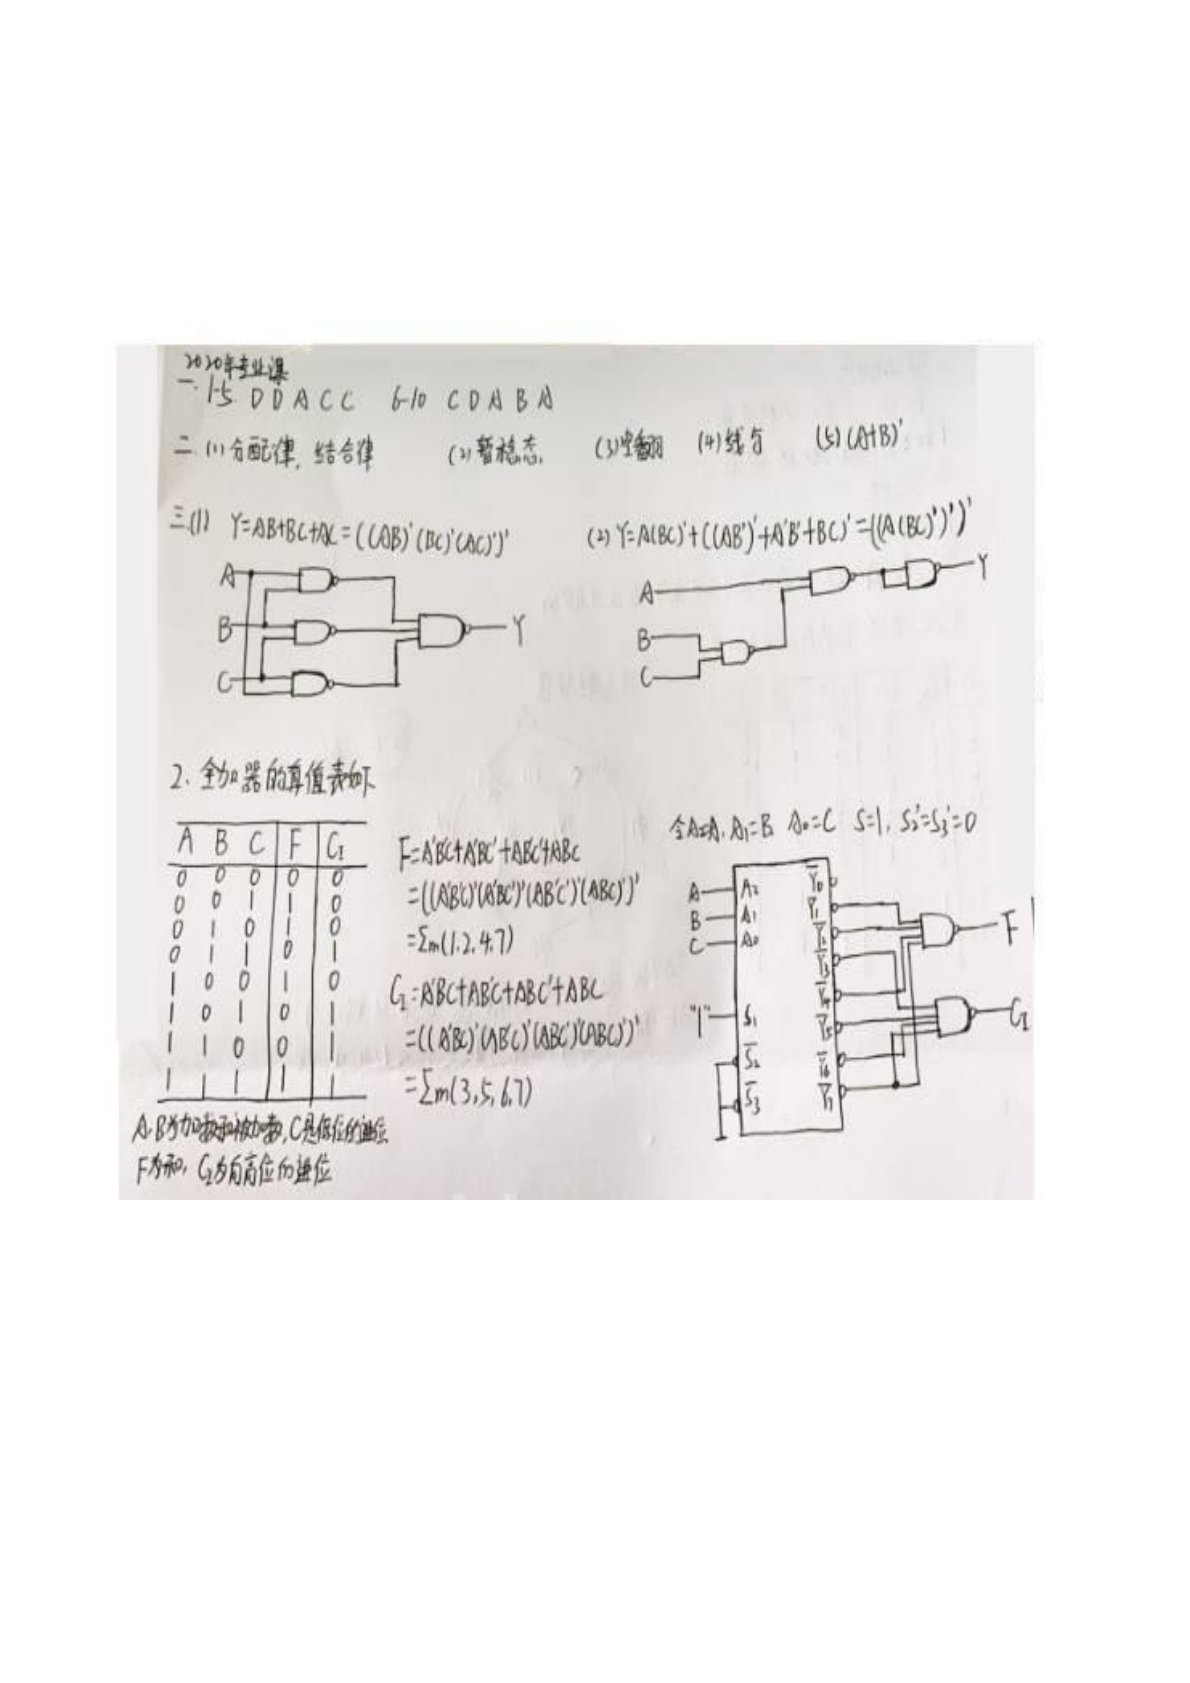 2020年专业课
一. 1-5 D D A C C 6-10 C D A B A
二. (1)分配律, 结合律 (2)暂稳态. (3)空翻 (4)线与 (5)(A+B)'
三.(1) Y=AB+BC+AC=((AB)'(BC)'(AC)')'
(2) Y=A(BC)'+((AB')'+A'B'+BC)'=((A(BC)')')'
A
B
C
Y
A
B
C
Y
2. 全加器的真值表如下
A B C F CI
0 0 0 0 0
0 0 1 1 0
0 1 0 1 0
0 1 1 0 1
1 0 0 1 0
1 0 1 0 1
1 1 0 0 1
1 1 1 1 1
A.B为加数和被加数,C是低位的进位
F为和, CI为向高位的进位
F=A'B'C+A'BC'+AB'C'+ABC
=((A'B'C)'(A'BC')'(AB'C')'(ABC)')'
=Σm(1.2.4.7)
CI=A'BC+AB'C+ABC'+ABC
=((A'BC)'(AB'C)'(ABC')'(ABC)')'
=Σm(3,5,6,7)
令A2=A, A1=B, A0=C S=1, S2'=S3'=0
A A2
B A1
C A0
"1" S1
S̅2
S̅3
Y̅0
Y̅1
Y̅2
Y̅3
Y̅4
Y̅5
Y̅6
Y̅7
F
CI